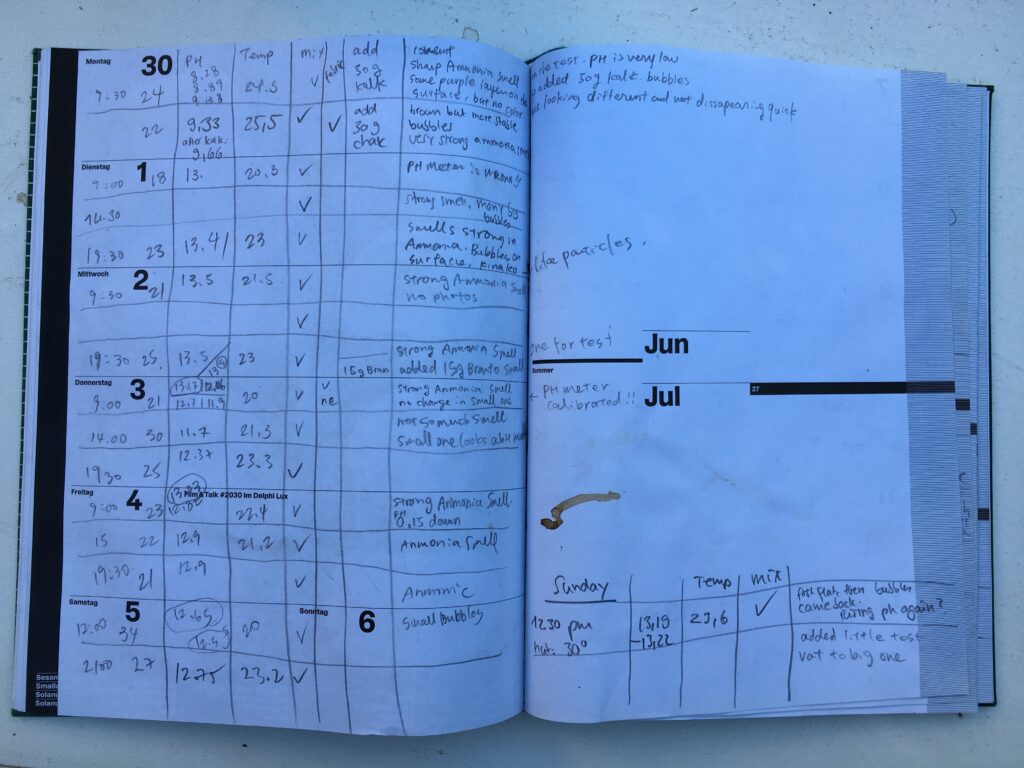 Montag 30 PH Temp mix add comment
9:30 24 8,28 24.5 ✓ fabric 30g sharp Ammonia smell
8.89 kalk some purple layer on the
9.133 surface, but no color
22 9,33 25,5 ✓ ✓ add brown but more stable
after kalk: 30g bubbles
9,66 chalk very strong ammonia smell
Dienstag 1
9:00 18 13. 20,3 ✓ PH meter is wrong!!
14.30 ✓ strong smell, many big
bubbles
19:30 23 13.41 23 ✓ smells strong in
Ammonia. Bubbles on
surface,
Mittwoch 2
9:30 21 13.5 21,5 ✓ strong Ammonia smell
no photos.
✓
19:30 25. 13.5 23 ✓ strong Ammonia smell
15g Braun added 15g Braun to small
Donnerstag 3
9:00 21 13.17 / 12.06 20 ✓ ✓ strong Ammonia smell
12.7 / 11.9 no change in small one
14:00 30 11.7 21,3 ✓ not so much smell
Small one looks a bit
19 30 25 12.37 23.3 ✓
Freitag 4 Film & Talk #2030 im Delphi Lux
9:00 23 22.4 ✓ strong Ammonia Smell.
PH 0,15 down
15 22 12.9 21,2 ✓ Ammonia Smell
19:30 21 12.9 ✓ Ammonic
Samstag 5 Sonntag 6
12:00 34 12.65 20 ✓ small Bubbles
21:00 27 12.75 23.2 ✓
Sesam
Smalla
Solanu
Solanu
the test. PH is very low
added 30g kalk. bubbles
looking different and not dissapearing quick
like particles.
one for test
Jun
Sommer
← PH meter
calibrated!!
Jul
27
Sunday Temp mix
12 30 pm 13,19 23,6 ✓ first flat, then bubbles
hot: 30° -13,22 came back.
Rising ph again?
added little test
vat to big one